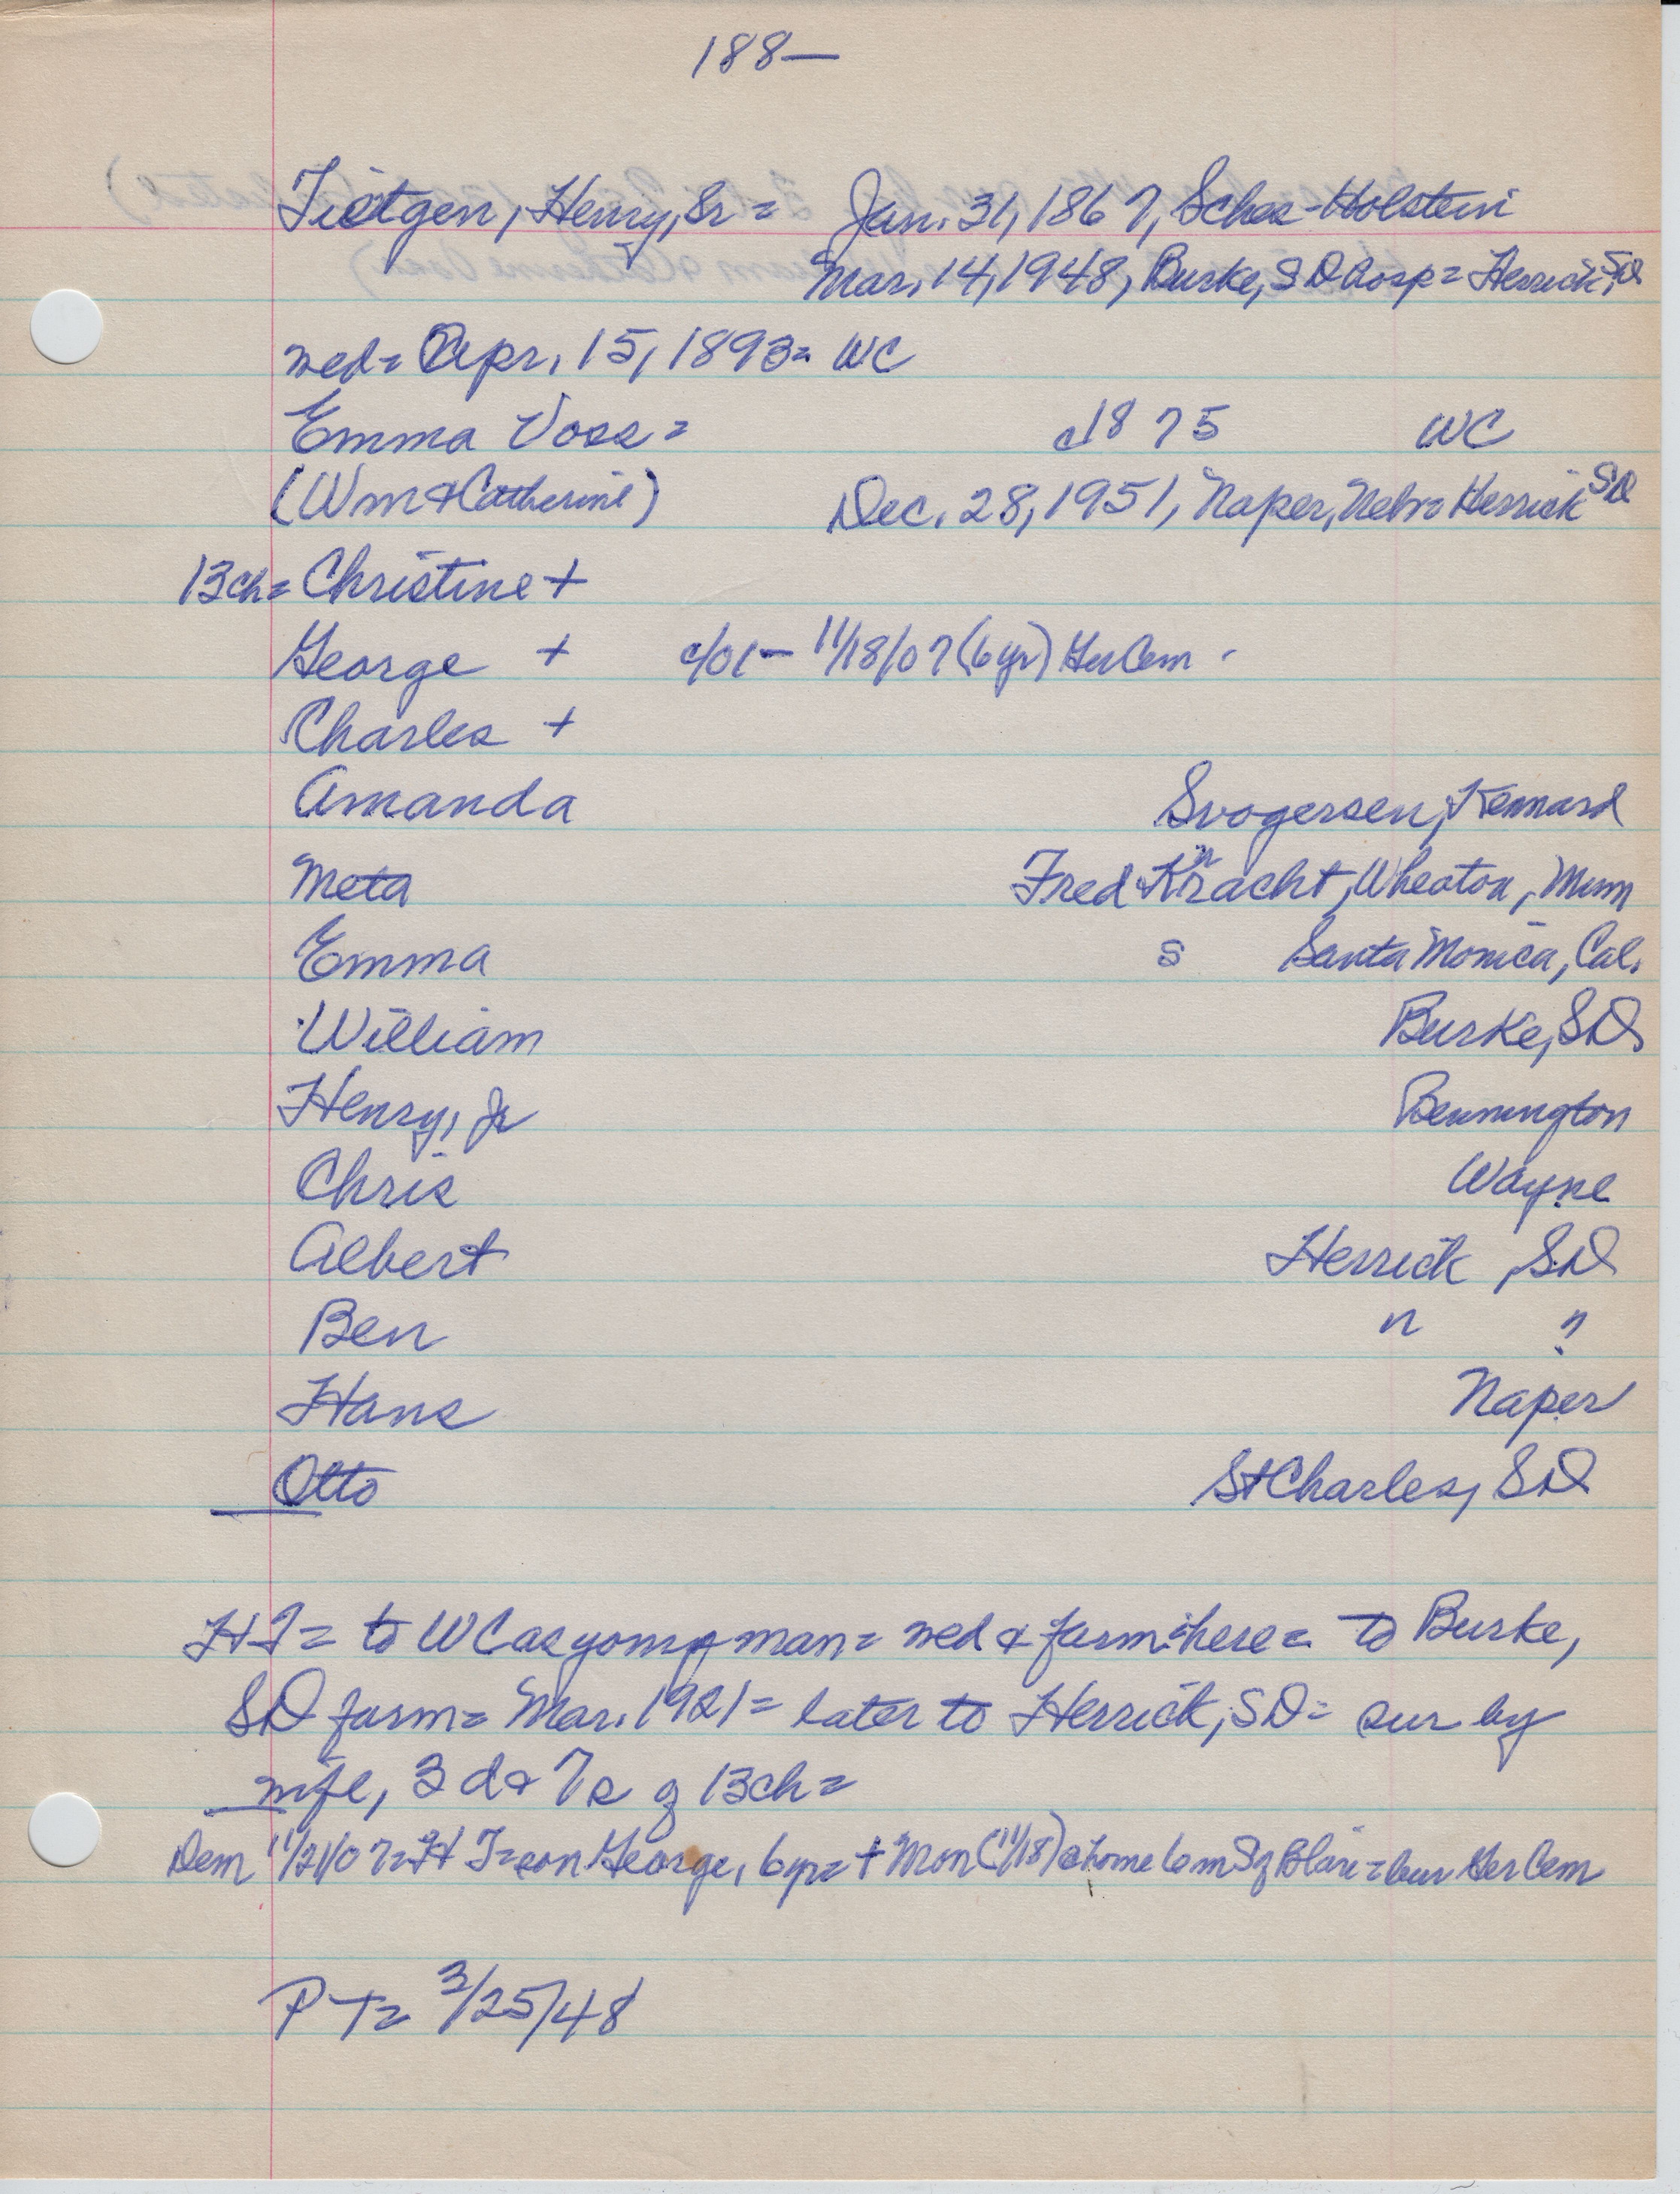 188—
Tietgen, Henry, Sr = Jan. 31, 1867, Sches-Holstein
Mar. 14, 1948, Burke, SD hosp = Herrick, SD
wed = Apr. 15, 1893 = WC
Emma Voss = c1875 WC
(Wm & Catherine) Dec. 28, 1951, Naper, Nebr = Herrick SD
13ch = Christine +
George + c/01 – 11/18/07 (6 yr) Ger Cem
Charles +
Amanda Svogersen, Kennard
Meta Fred Kracht, Wheaton, Minn
Emma s Santa Monica, Cal.
William Burke, SD
Henry, Jr Bennington
Chris Wayne
Albert Herrick, SD
Ben " "
Hans Naper
Otto St Charles, SD
HT = to WC as young man = wed & farm here = to Burke,
SD farm = Mar. 1921 = later to Herrick, SD = sur by
wife, 3 d & 7 s of 13ch =
Dem 11/21/07 = H T = son George, 6 yr = + Mon (11/18) @ home 6 m S of Blair = bur Ger Cem
PT = 3/25/48